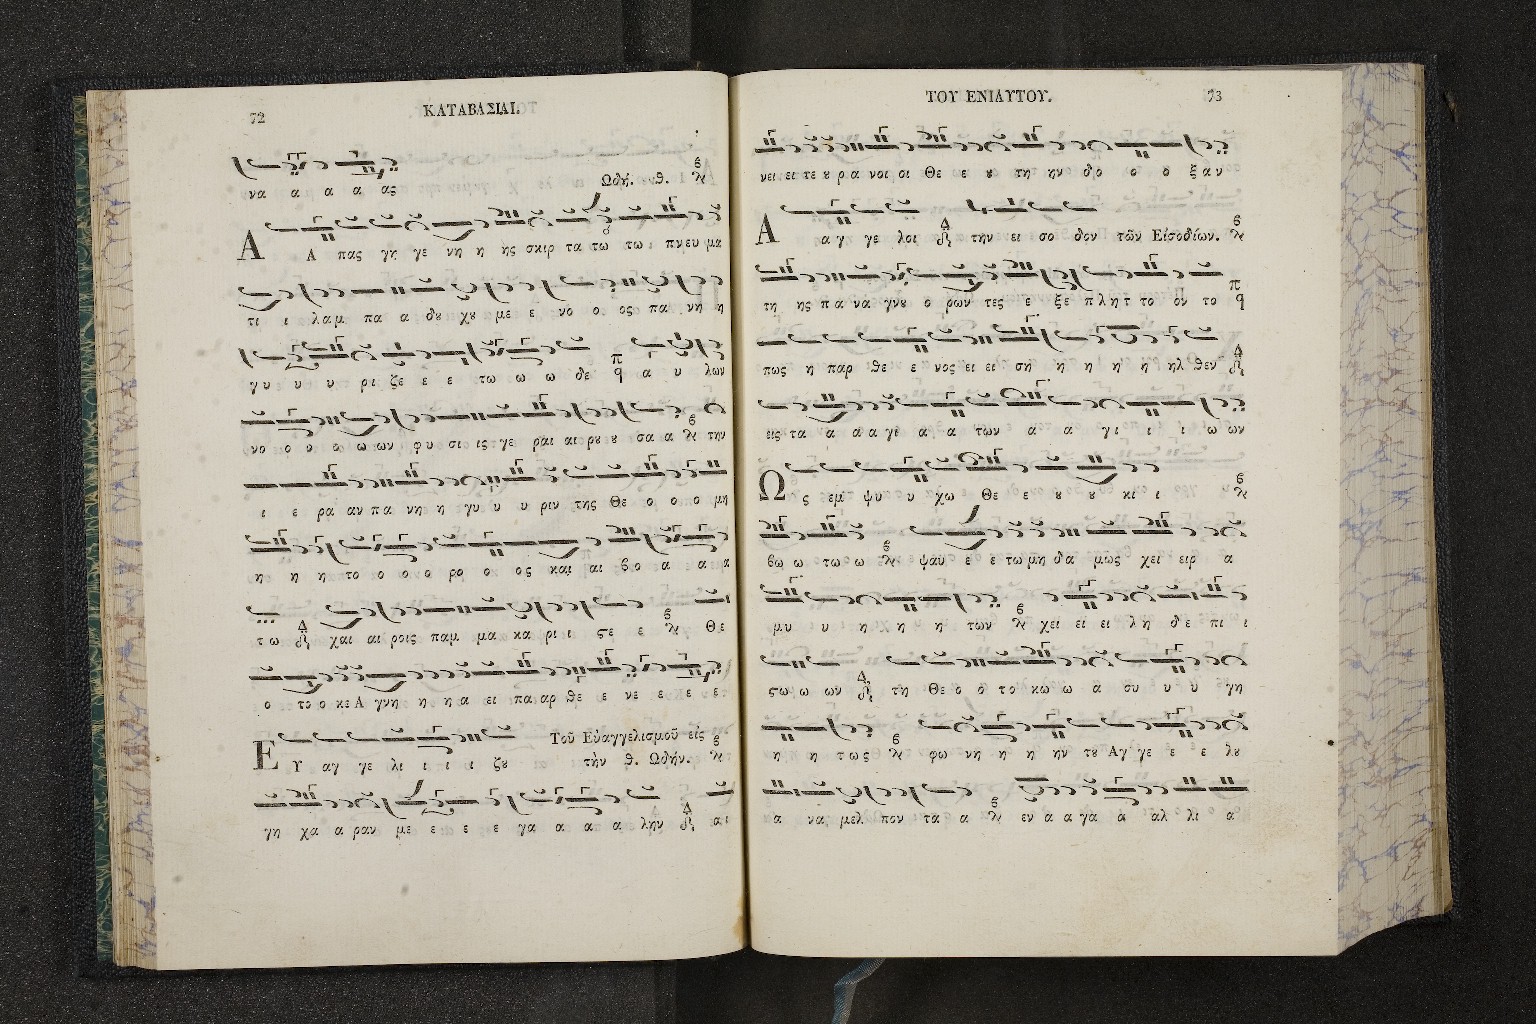 72
ΚΑΤΑΒΑΣΙΑΙ.
να α α α ας Ωδή. θ.
Α Α πας γη γε νη η ης σκιρ τα τω τω πνευ μα
τι ι λαμ πα α δȣ χȣ με ε νο ο ος πα νη η
γυ υ υ υ ρι ζε ε ε τω ω ω δε α υ λων
νο ο ο ο ω ων φυ σι ις γε ραι αι ρȣ ȣ σα α την
ι ε ρα αν πα νη η γυ υ υ ριν της Θε ο ο ο μη
η η η το ο ο ο ρο ο ος και αι βο α α α
τω χαι αι ροις παμ μα κα ρι ι ϛε ε Θε
ο το ο κε Α γνη η η α ει πα αρ θε ε νε ε ε ε
Ε Υ αγ γε λι ι ι ι ζȣ Τοῦ Εὐαγγελισμοῦ εἰς τὴν θ. Ωδήν.
γη χα α ραν με ε ε ε γα α α α λην αι
ΤΟΥ ΕΝΙΑΥΤΟΥ.
73
νει ει τε ȣ ρα νοι οι Θε ε ȣ τη ην δο ο ο ξαν
Α αγ γε λοι την ει σο δον τῶν Εἰσοδίων.
τη ης πα να γνȣ ο ρων τες ε ξε πλητ το ον το
πως η παρ θε ε νος ει ει ση η η η η ηλ θεν
εις τα α α α γι α α των α α γι ι ι ω ων
Ω ς εμ ψυ υ χω Θε ε ȣ ȣ κι ι
βω ω τω ω ψαυ ε ε τω μη δα μως χει ειρ α
μυ υ η χη η των χει ει ει λη δε πι ι
ϛω ω ων τη Θε ο ο το κω ω α συ υ υ γη
η η τως φω νη η η ην τȣ Αγ γε ε ε λȣ
α να μελ πον τα α εν α α γα α αλ λι α